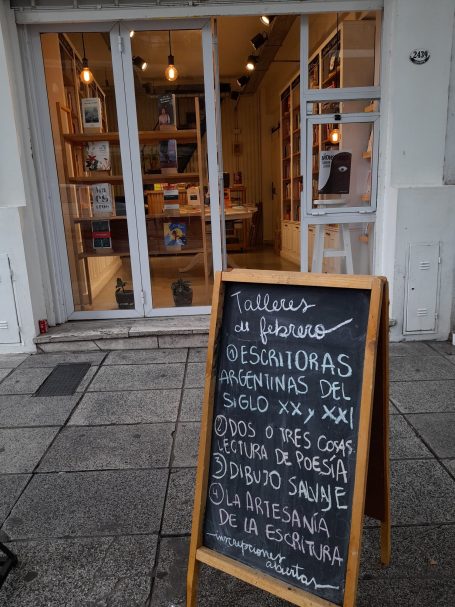 2439
Talleres
de febrero
① ESCRITORAS
ARGENTINAS DEL
SIGLO XX y XXI
② DOS O TRES COSAS.
LECTURA DE POESÍA
③ DIBUJO SALVAJE
④ LA ARTESANÍA
DE LA ESCRITURA
inscripciones
abiertas